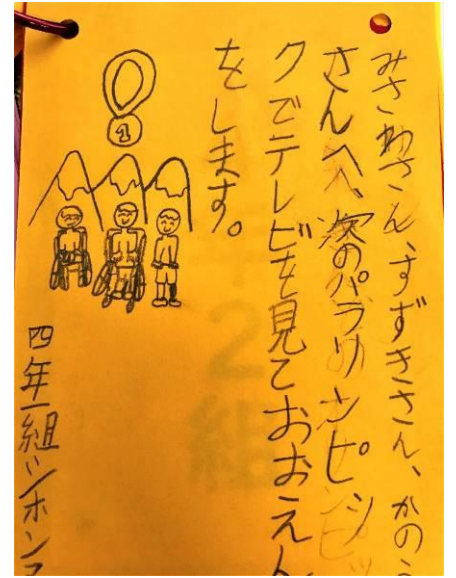 みさわさん、すずきさん、かのう
さんへ、次のパラリンピッ
クでテレビを見ておおえん
をします。
1
四年一組ツホンマ
年2組